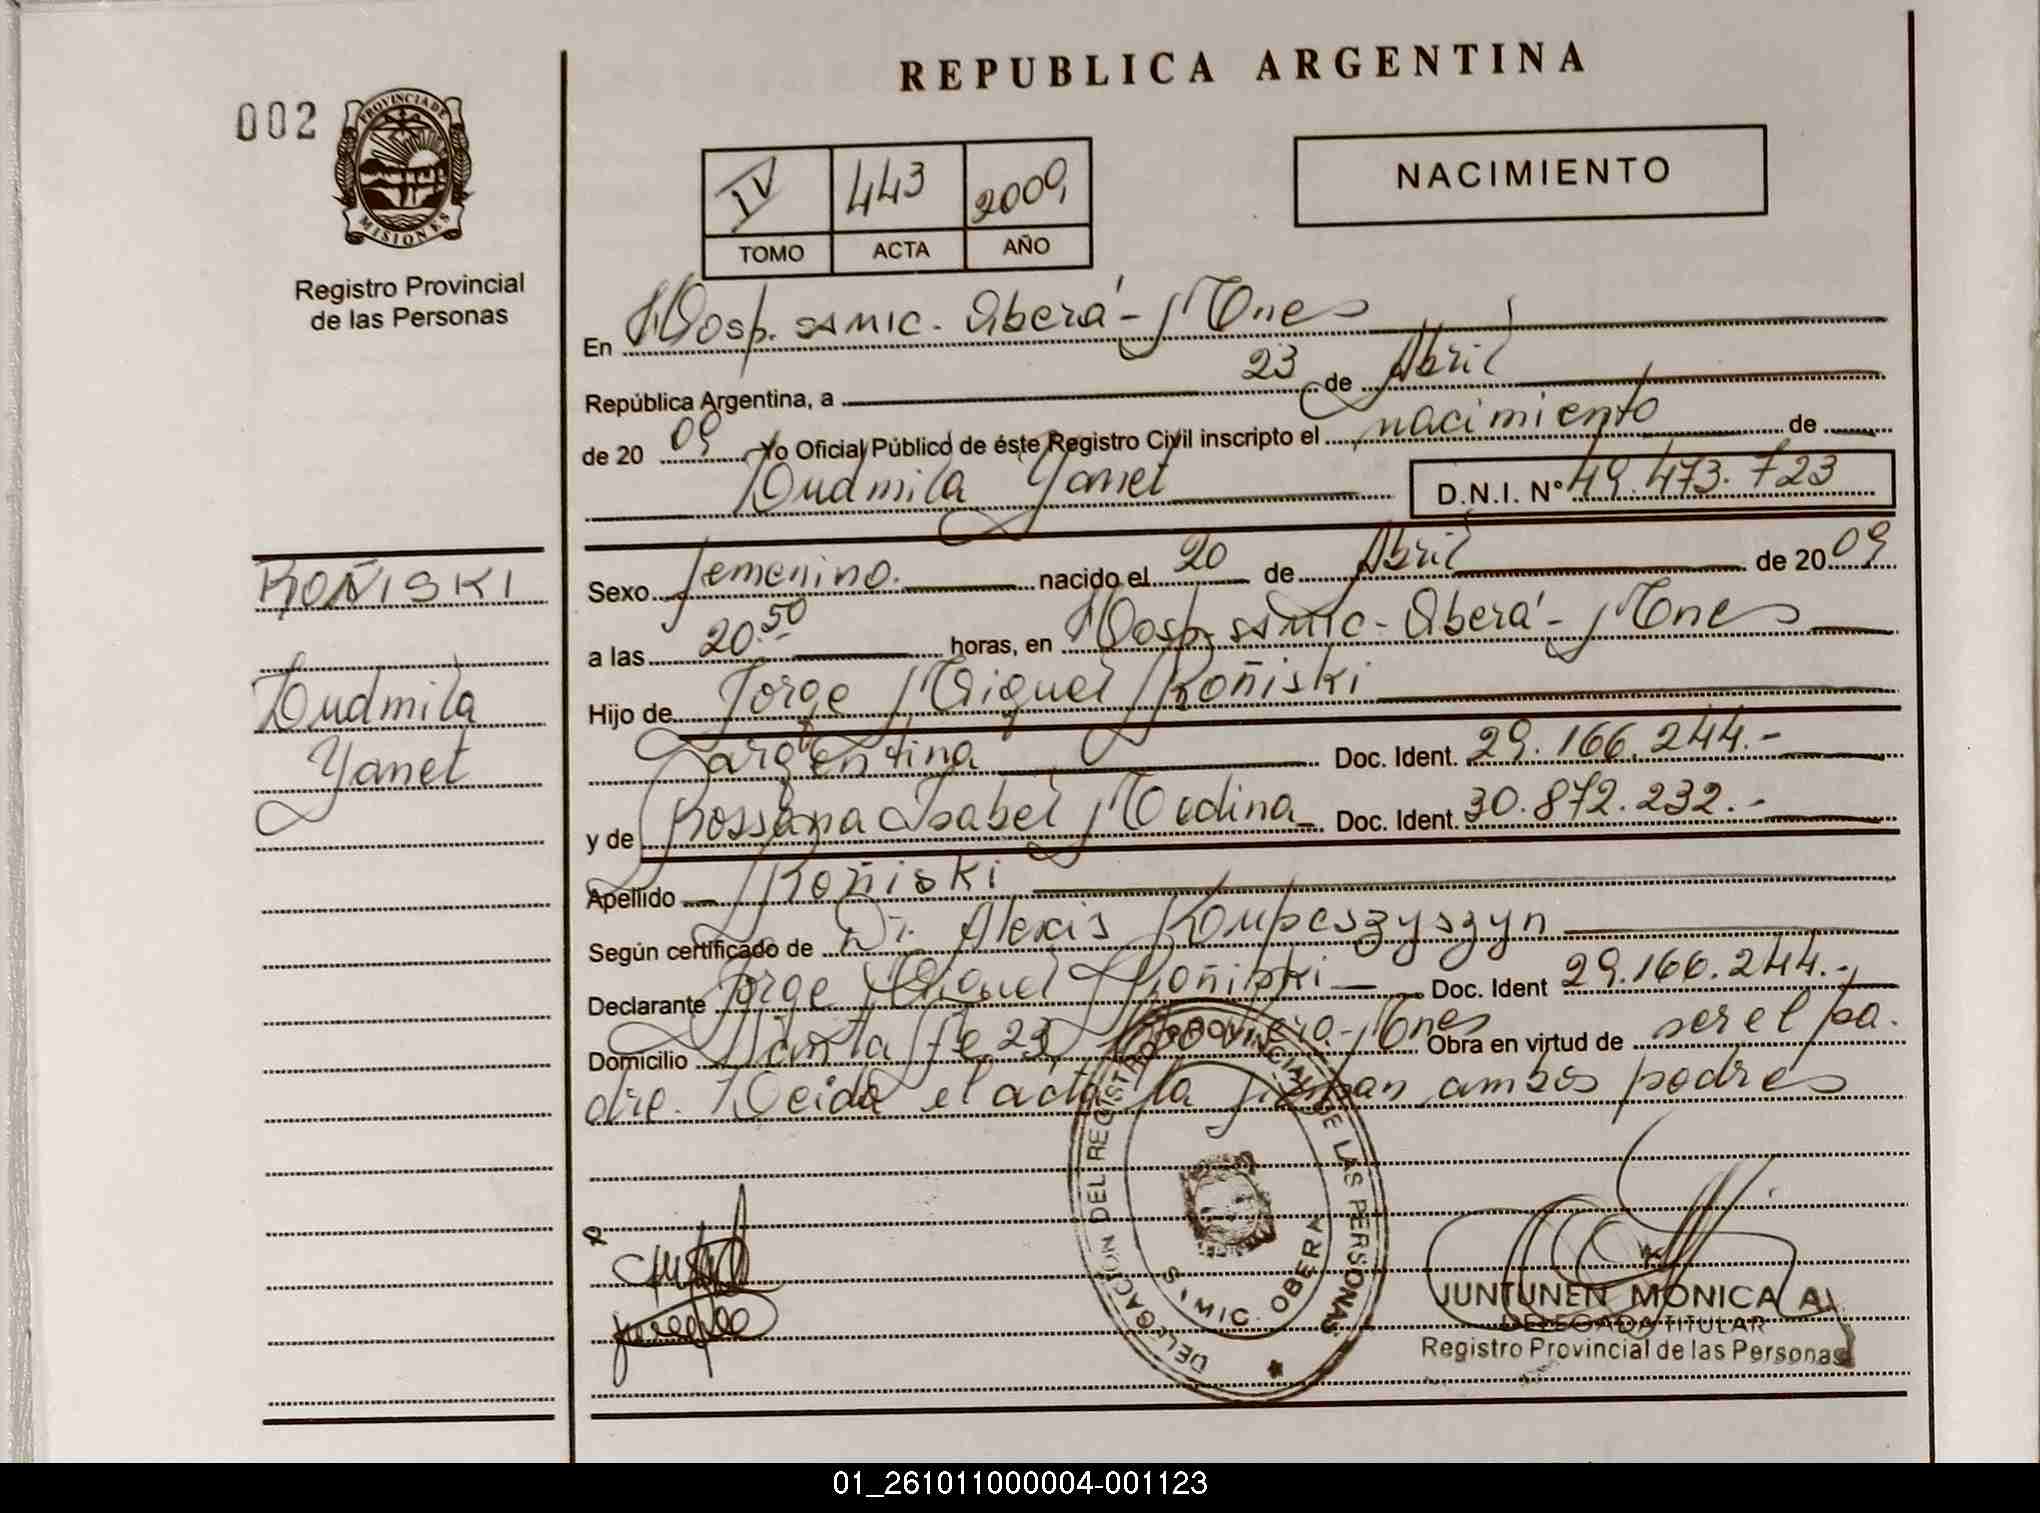 REPUBLICA ARGENTINA
002
PROVINCIA DE MISIONES
Registro Provincial
de las Personas
IV 443 2009
TOMO ACTA AÑO
NACIMIENTO
En Hosp. SAMIC. Oberá - Mnes
República Argentina, a 23 de Abril
de 20 09 Yo Oficial Público de éste Registro Civil inscripto el nacimiento de
Ludmila Yanet D.N.I. N° 49.473.723
ROÑISKI
Ludmila
Yanet
Sexo femenino. nacido el 20 de Abril de 20 09
a las 20.50 horas, en Hosp. SAMIC - Oberá - Mnes
Hijo de Jorge Miguel Roñiski
argentina Doc. Ident. 29.166.244.-
y de Rossana Isabel Medina Doc. Ident. 30.872.232.-
Apellido Roñiski
Según certificado de Dr. Alexis Koupeszyszyn
Declarante Jorge Miguel Roñiski Doc. Ident 29.166.244.-
Domicilio Santa Fe 23 Mnes Obra en virtud de ser el pa.
dre. Leida el acta la firman ambos padres
DELEGACION DEL REGISTRO PROVINCIAL DE LAS PERSONAS
S.A.MIC. OBERA
JUNTUNEN MONICA A.
DELEGADA TITULAR
Registro Provincial de las Personas
01_261011000004-001123